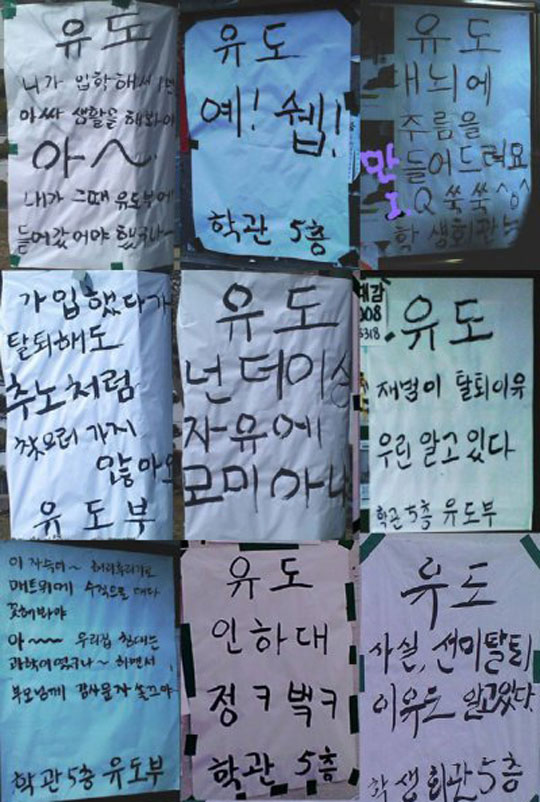 유도
니가 입학해서 1년
아싸 생활을 해봐야
아~
내가 그때 유도부에
들어갔어야 했구나~
유도
예! 쉡!
학관 5층
유도
대뇌에
주름을
만들어드려요
I.Q 쑥쑥^ö^
학생회관 5
가입했다가
탈퇴해도
추노처럼
찾으러 가지
않아요
유도부
유도
넌 더이상
자유에
코미 아냐
유도
재범이 탈퇴이유
우린 알고있다
학관5층 유도부
이 자식이~ 허리후리기로
매트위에 수직으로 대다
꽂혀봐야
아~~~ 우리집 침대는
과학이었구나~ 하면서
부모님께 감사문자 쓸끄야
학관5층 유도부
유도
인하대
정ㅋ벅ㅋ
학관 5층
유도
사실, 선미탈퇴
이유도 알고있다.
학생회관5층